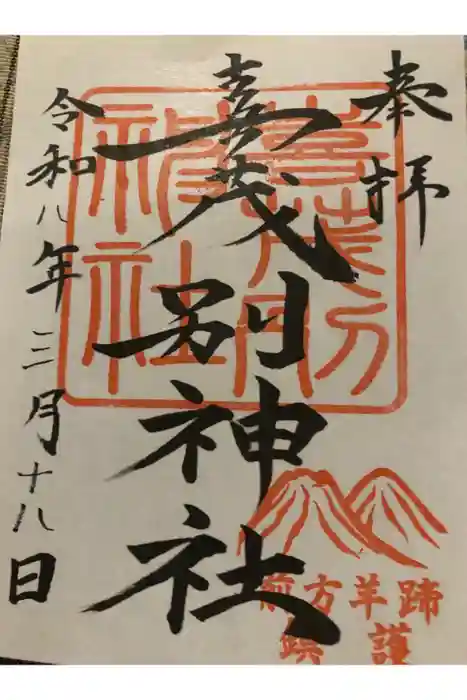 奉拝
喜茂別神社
令和八年三月十八日
喜茂別
神社
蹄羊方前
護